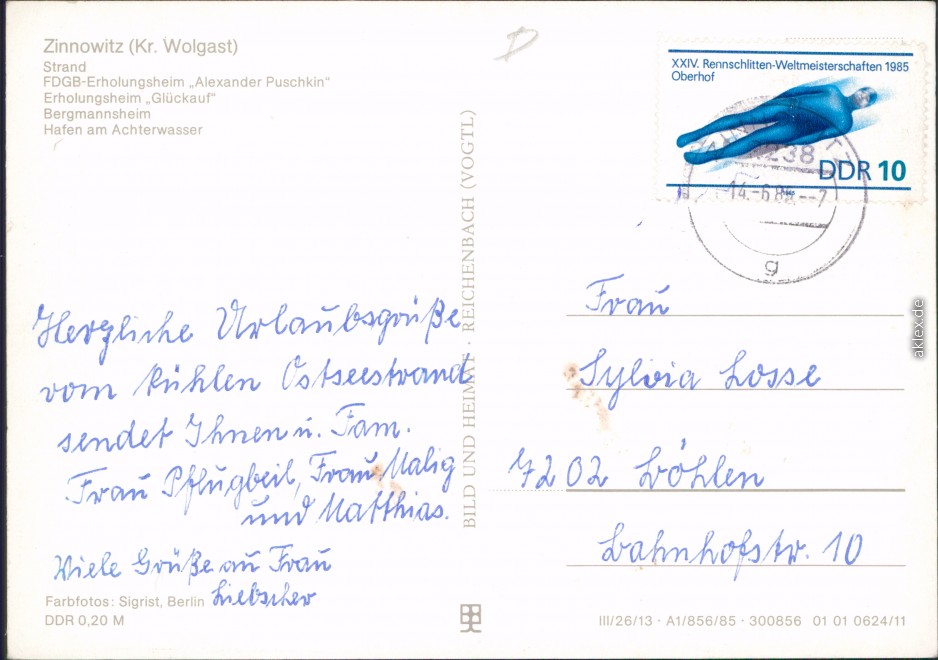 Zinnowitz (Kr. Wolgast)
Strand
FDGB-Erholungsheim „Alexander Puschkin“
Erholungsheim „Glückauf“
Bergmannsheim
Hafen am Achterwasser
XXIV. Rennschlitten-Weltmeisterschaften 1985
Oberhof
DDR 10
Herzliche Urlaubsgrüße
vom kühlen Ostseestrand
sendet Ihnen u. Fam.
Frau Pflugbeil, Frau Malig
und Matthias.
Viele Grüße an Frau
Liebscher
BILD UND HEIMAT · REICHENBACH (VOGTL)
Frau
Sylvia Losse
7202 Böhlen
Bahnhofstr. 10
Farbfotos: Sigrist, Berlin
DDR 0,20 M
III/26/13 · A1/856/85 · 300856 01 01 0624/11
aklex.de
g